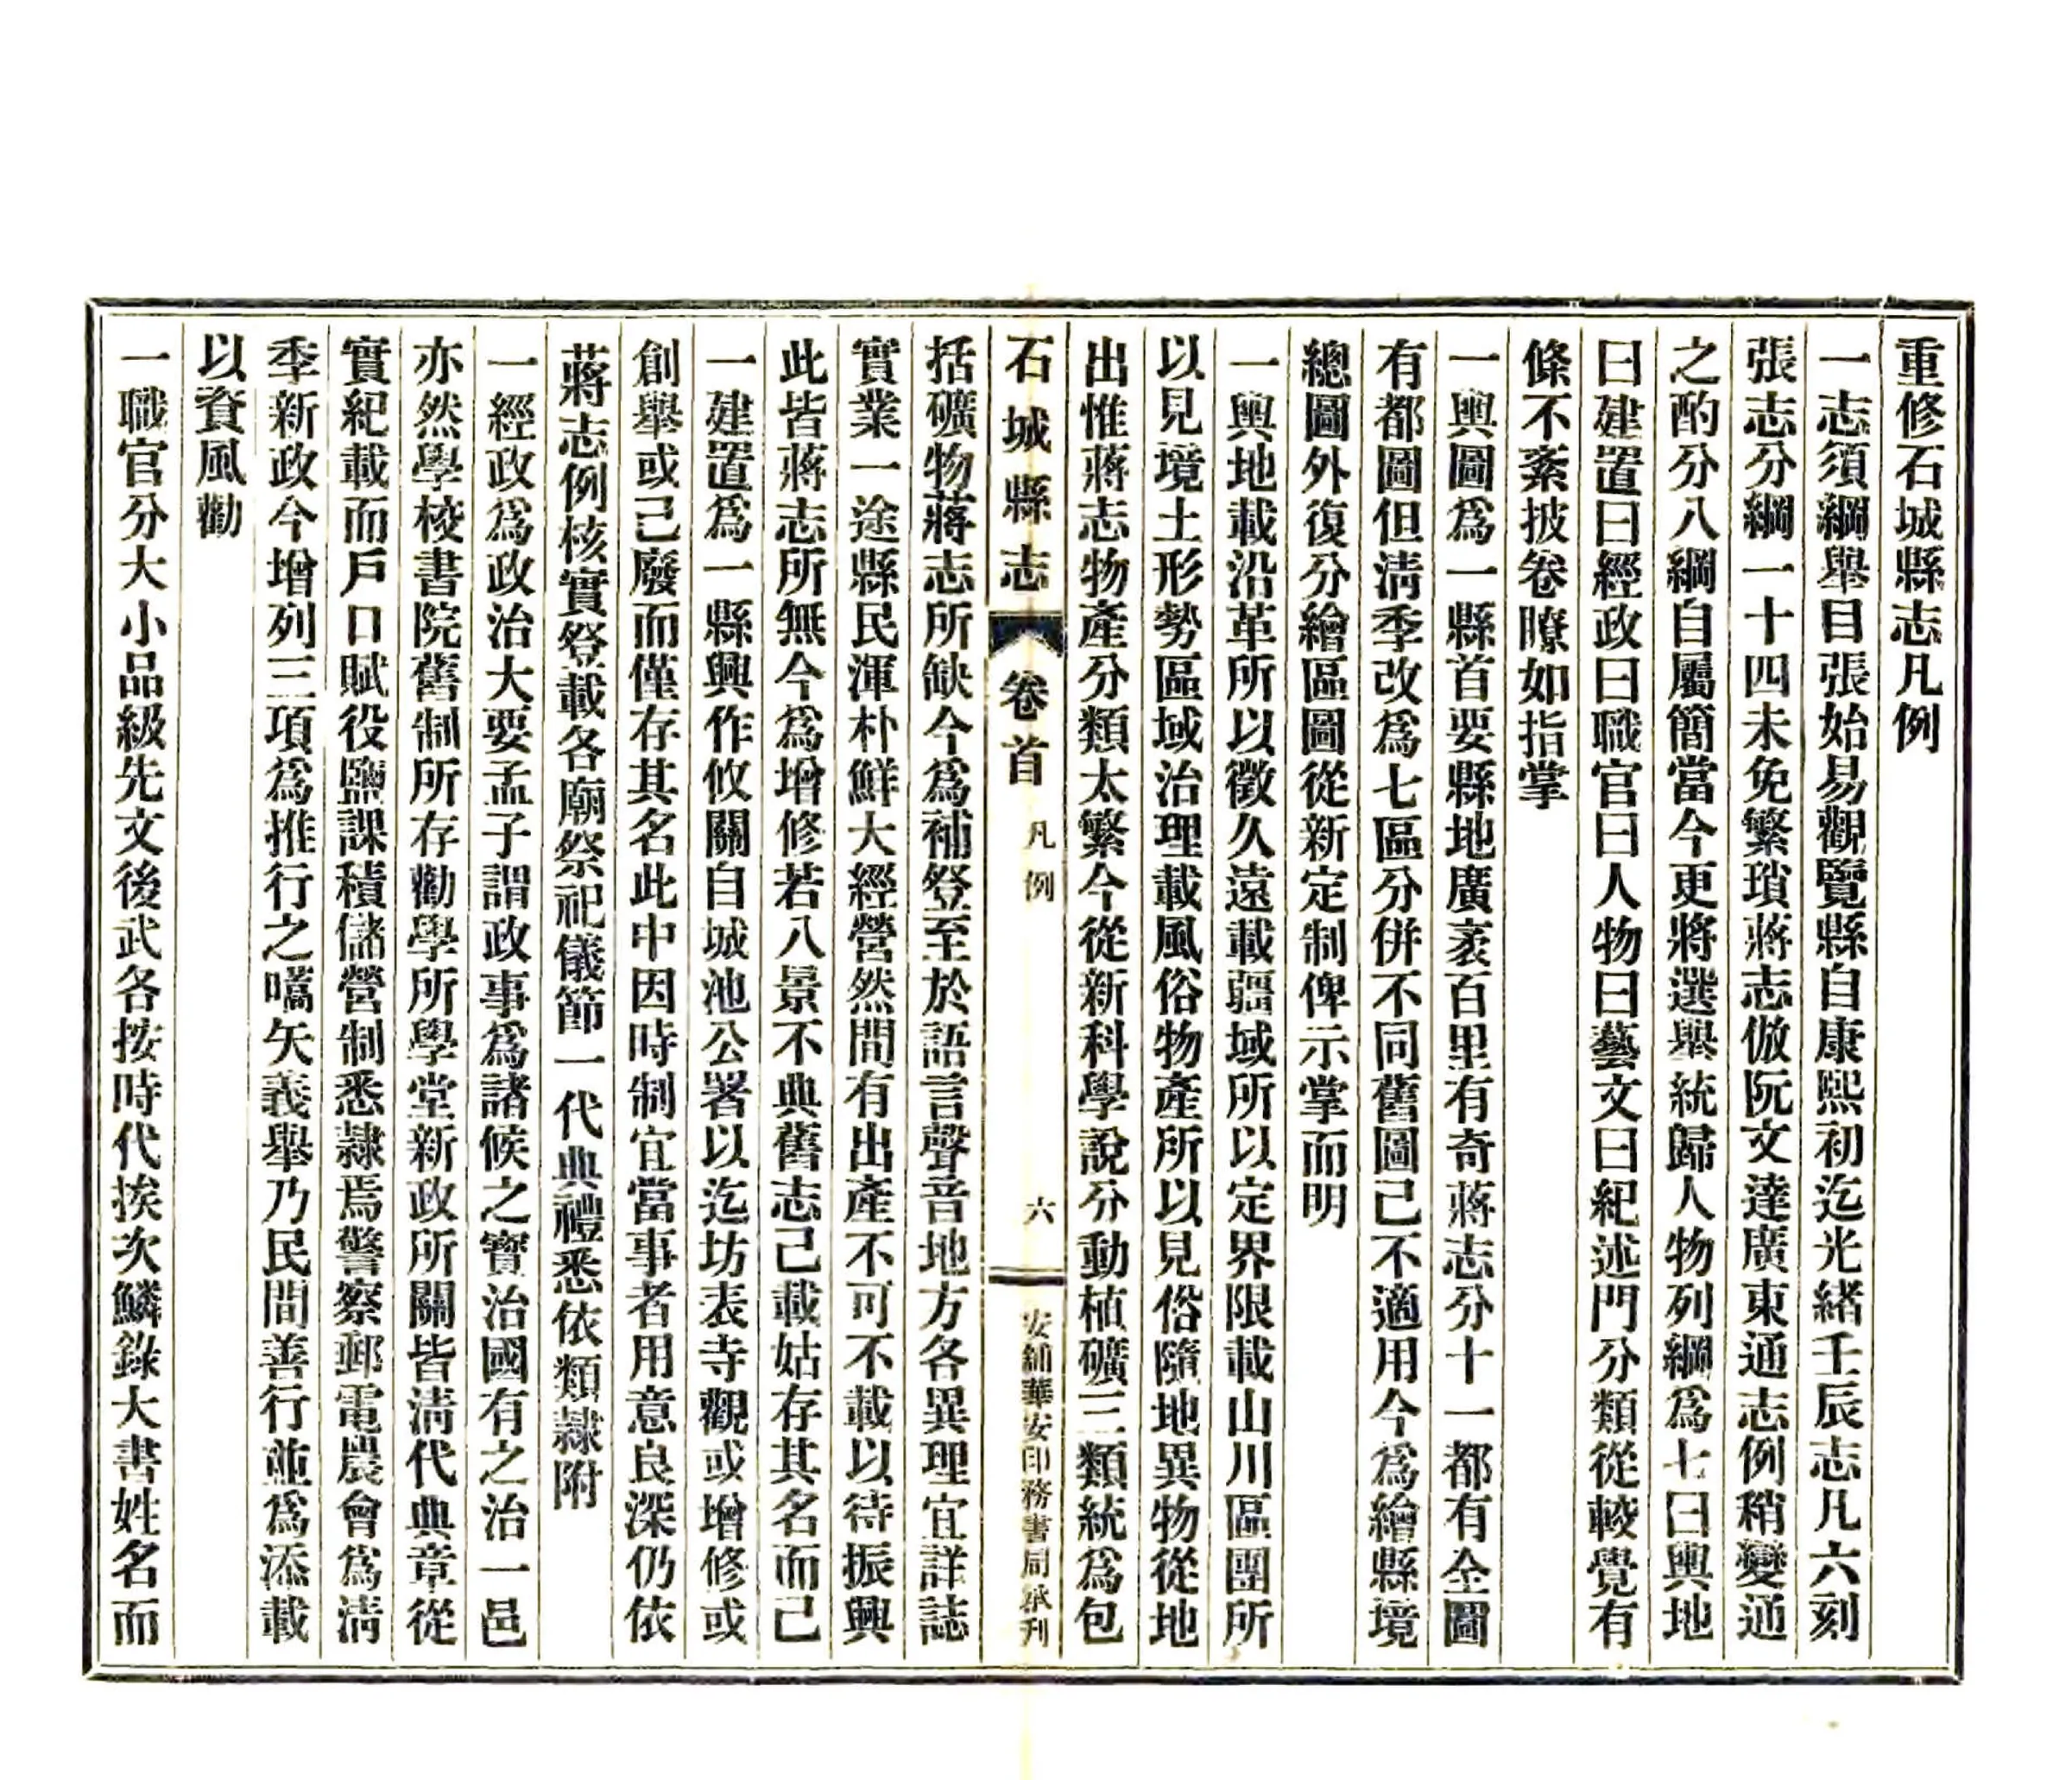 重修石城縣志凡例
一志須綱舉目張始易觀覽縣自康熙初迄光緒壬辰志凡六刻
張志分綱一十四未免繁瑣蔣志倣阮文達廣東通志例稍變通
之酌分八綱自屬簡當今更將選舉統歸人物列綱爲七曰輿地
曰建置曰經政曰職官曰人物曰藝文曰紀述門分類從較覺有
條不紊披卷瞭如指掌
一輿圖爲一縣首要縣地廣袤百里有奇蔣志分十一都有全圖
有都圖但淸季改爲七區分併不同舊圖已不適用今爲繪縣境
總圖外復分繪區圖從新定制俾示掌而明
一輿地載沿革所以徵久遠載疆域所以定界限載山川區團所
以見境土形勢區域治理載風俗物產所以見俗隨地異物從地
出惟蔣志物產分類太繁今從新科學說分動植礦三類統爲包
石城縣志 卷首 凡例 六 安鋪華安印務書局承刊
括礦物蔣志所缺今爲補登至於語言聲音地方各異理宜詳誌
實業一途縣民渾朴鮮大經營然間有出產不可不載以待振興
此皆蔣志所無今爲增修若八景不典舊志已載姑存其名而已
一建置爲一縣興作攸關自城池公署以迄坊表寺觀或增修或
創舉或已廢而僅存其名此中因時制宜當事者用意良深仍依
蔣志例核實登載各廟祭祀儀節一代典禮悉依類隸附
一經政爲政治大要孟子謂政事爲諸候之寳治國有之治一邑
亦然學校書院舊制所存勸學所學堂新政所關皆淸代典章從
實紀載而戶口賦役鹽課積儲營制悉隸焉警察郵電農會爲淸
季新政今增列三項爲推行之嚆矢義舉乃民間善行並爲添載
以資風勸
一職官分大小品級先文後武各按時代挨次鱗錄大書姓名而